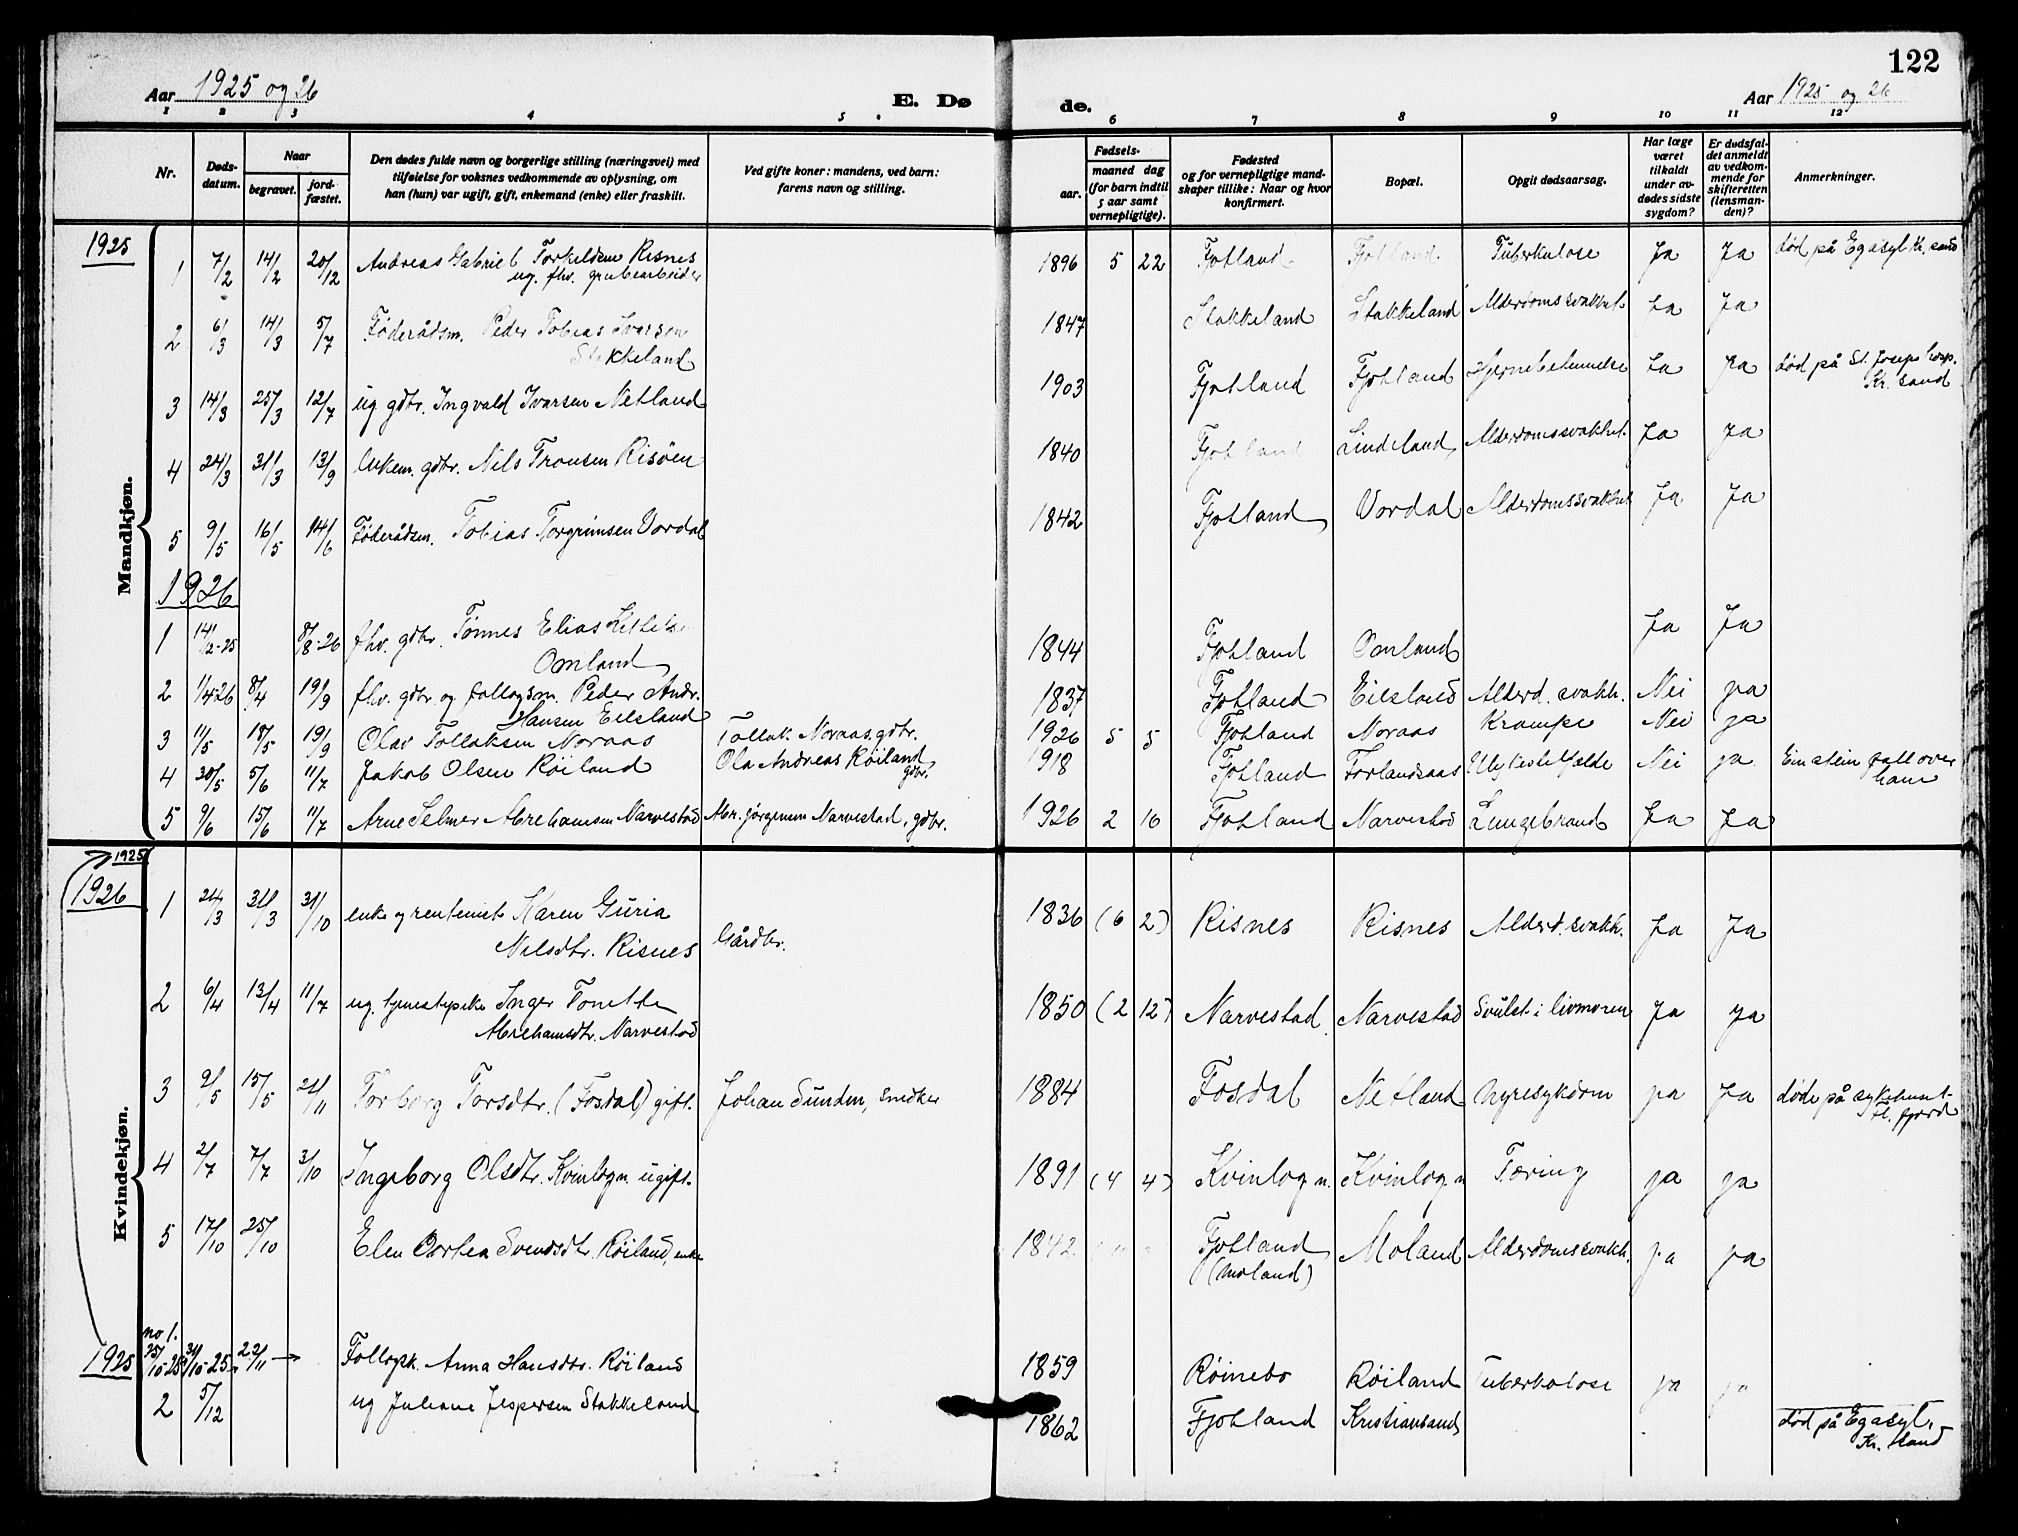 122
Aar 1925 og 26
E. Dø
de.
Aar 1925 og 26
1 2 3 4 5 6 7 8 9 10 11 12
Nr.
Døds-
datum.
Naar
begravet.
jord-
fæstet.
Den dødes fulde navn og borgerlige stilling (næringsvei) med
tilføielse for voksnes vedkommende av oplysning, om
han (hun) var ugift, gift, enkemand (enke) eller fraskilt.
Ved gifte koner: mandens, ved barn:
farens navn og stilling.
Fødsels-
aar.
maaned dag
(for barn indtil
5 aar samt
vernepligtige).
Fødested
og for vernepligtige mand-
skaper tillike: Naar og hvor
konfirmert.
Bopæl.
Opgit dødsaarsag.
Har læge
været
tilkaldt
under av-
dødes sidste
sygdom?
Er dødsfal-
det anmeldt
av vedkom-
mende for
skifteretten
(lensman-
den)?
Anmerkninger.
Mandkjøn.
1925
1 7/2 14/2 20/12 Andreas Gabriel Torkeldsen Risnes 1896 5 22 Fjotland Fjotland Tuberkulose Ja Ja død på Egasyl Kr. sand
ug. fhv. grubearbeider
2 6/3 14/3 5/7 Føderådsm. Peder Tobias Ivarsen 1847 Stakkeland Stakkeland Alderdomssvakhet Ja Ja
Stakkeland
3 14/3 25/3 12/7 ug gdbr. Ingvald Ivarsen Netland 1903 Fjotland Fjotland Hjernebetennelse Ja Ja død på St. Josephs hosp.
Kr. sand
4 24/3 31/3 13/9 Enkem. gdbr. Nils Tronsen Risöen 1840 Fjotland Lindeland Alderdomssvakhet Ja Ja
5 9/5 16/5 14/6 Føderådsm. Tobias Torgrimsen Vordal 1842 Fjotland Vordal Alderdomssvakhet Ja Ja
1926
1 14/12-25 8/8-26 fhv. gdbr. Tønnes Elias 1844 Fjotland Omland Ja Ja
Omland
2 1/4 26 8/4 19/9 fhv. gdbr og fattigsm. Peder Andr. 1837 Fjotland Eilsland Alderd. svakh. Nei ja
Hansen Eilsland
3 11/5 18/5 19/9 Olav Tollaksen Noraas Tollak Noraas gdbr. 1926 5 5 Fjotland Noraas Krampe Nei ja
4 30/5 5/6 11/7 Jakob Olsen Røiland Ola Andreas Røiland gdbr. 1918 Fjotland Forlandsaas Ulykestilfælde Nei ja Ein stein fall over
ham
5 9/6 15/6 11/7 Arne Selmer Abrehamsen Narvestad Abr. Jørgensen Narvestad, gdbr. 1926 2 16 Fjotland Narvestad Lungebrand Ja Ja
Kvindekjøn.
1925
1926
1 24/3 31/3 31/10 enke og rentenist Karen Guria 1836 (6 2) Risnes Risnes Alderd. svakh. Ja Ja
Nilsdtr. Risnes Gårdbr.
2 6/4 13/4 11/7 ug. tjenestepike Inger Tonette 1850 (2 12) Narvestad Narvestad Svulst i livmoren Ja ja
Abrehamsdtr. Narvestad
3 9/5 15/5 21/11 Torborg Torsdtr. (Fosdal) gift. Johan Sunden, snedker 1884 Fosdal Netland Nyresykdom ja Ja døde på sykehuset
Fl. fjord
4 2/7 7/7 3/10 Ingeborg Olsdtr. Kvinlog n. ugift. 1891 (4 4) Kvinlog n. Kvinlog n Tæring ja ja
5 17/10 25/10 Elen Dortea Svendsdtr. Røiland, enke 1842 Fjotland Moland Alderdomssvakh. ja ja
(Moland)
1925
no 1. 25/10-25 31/10-25 22/11 Anna Hansdtr. Røiland 1859 Røinebo Røiland Tuberkolose ja ja
2 5/12 ug Juliane Jespersen Stakkeland 1862 Fjotland Kristiansand død på Egasyl,
Kr. sand